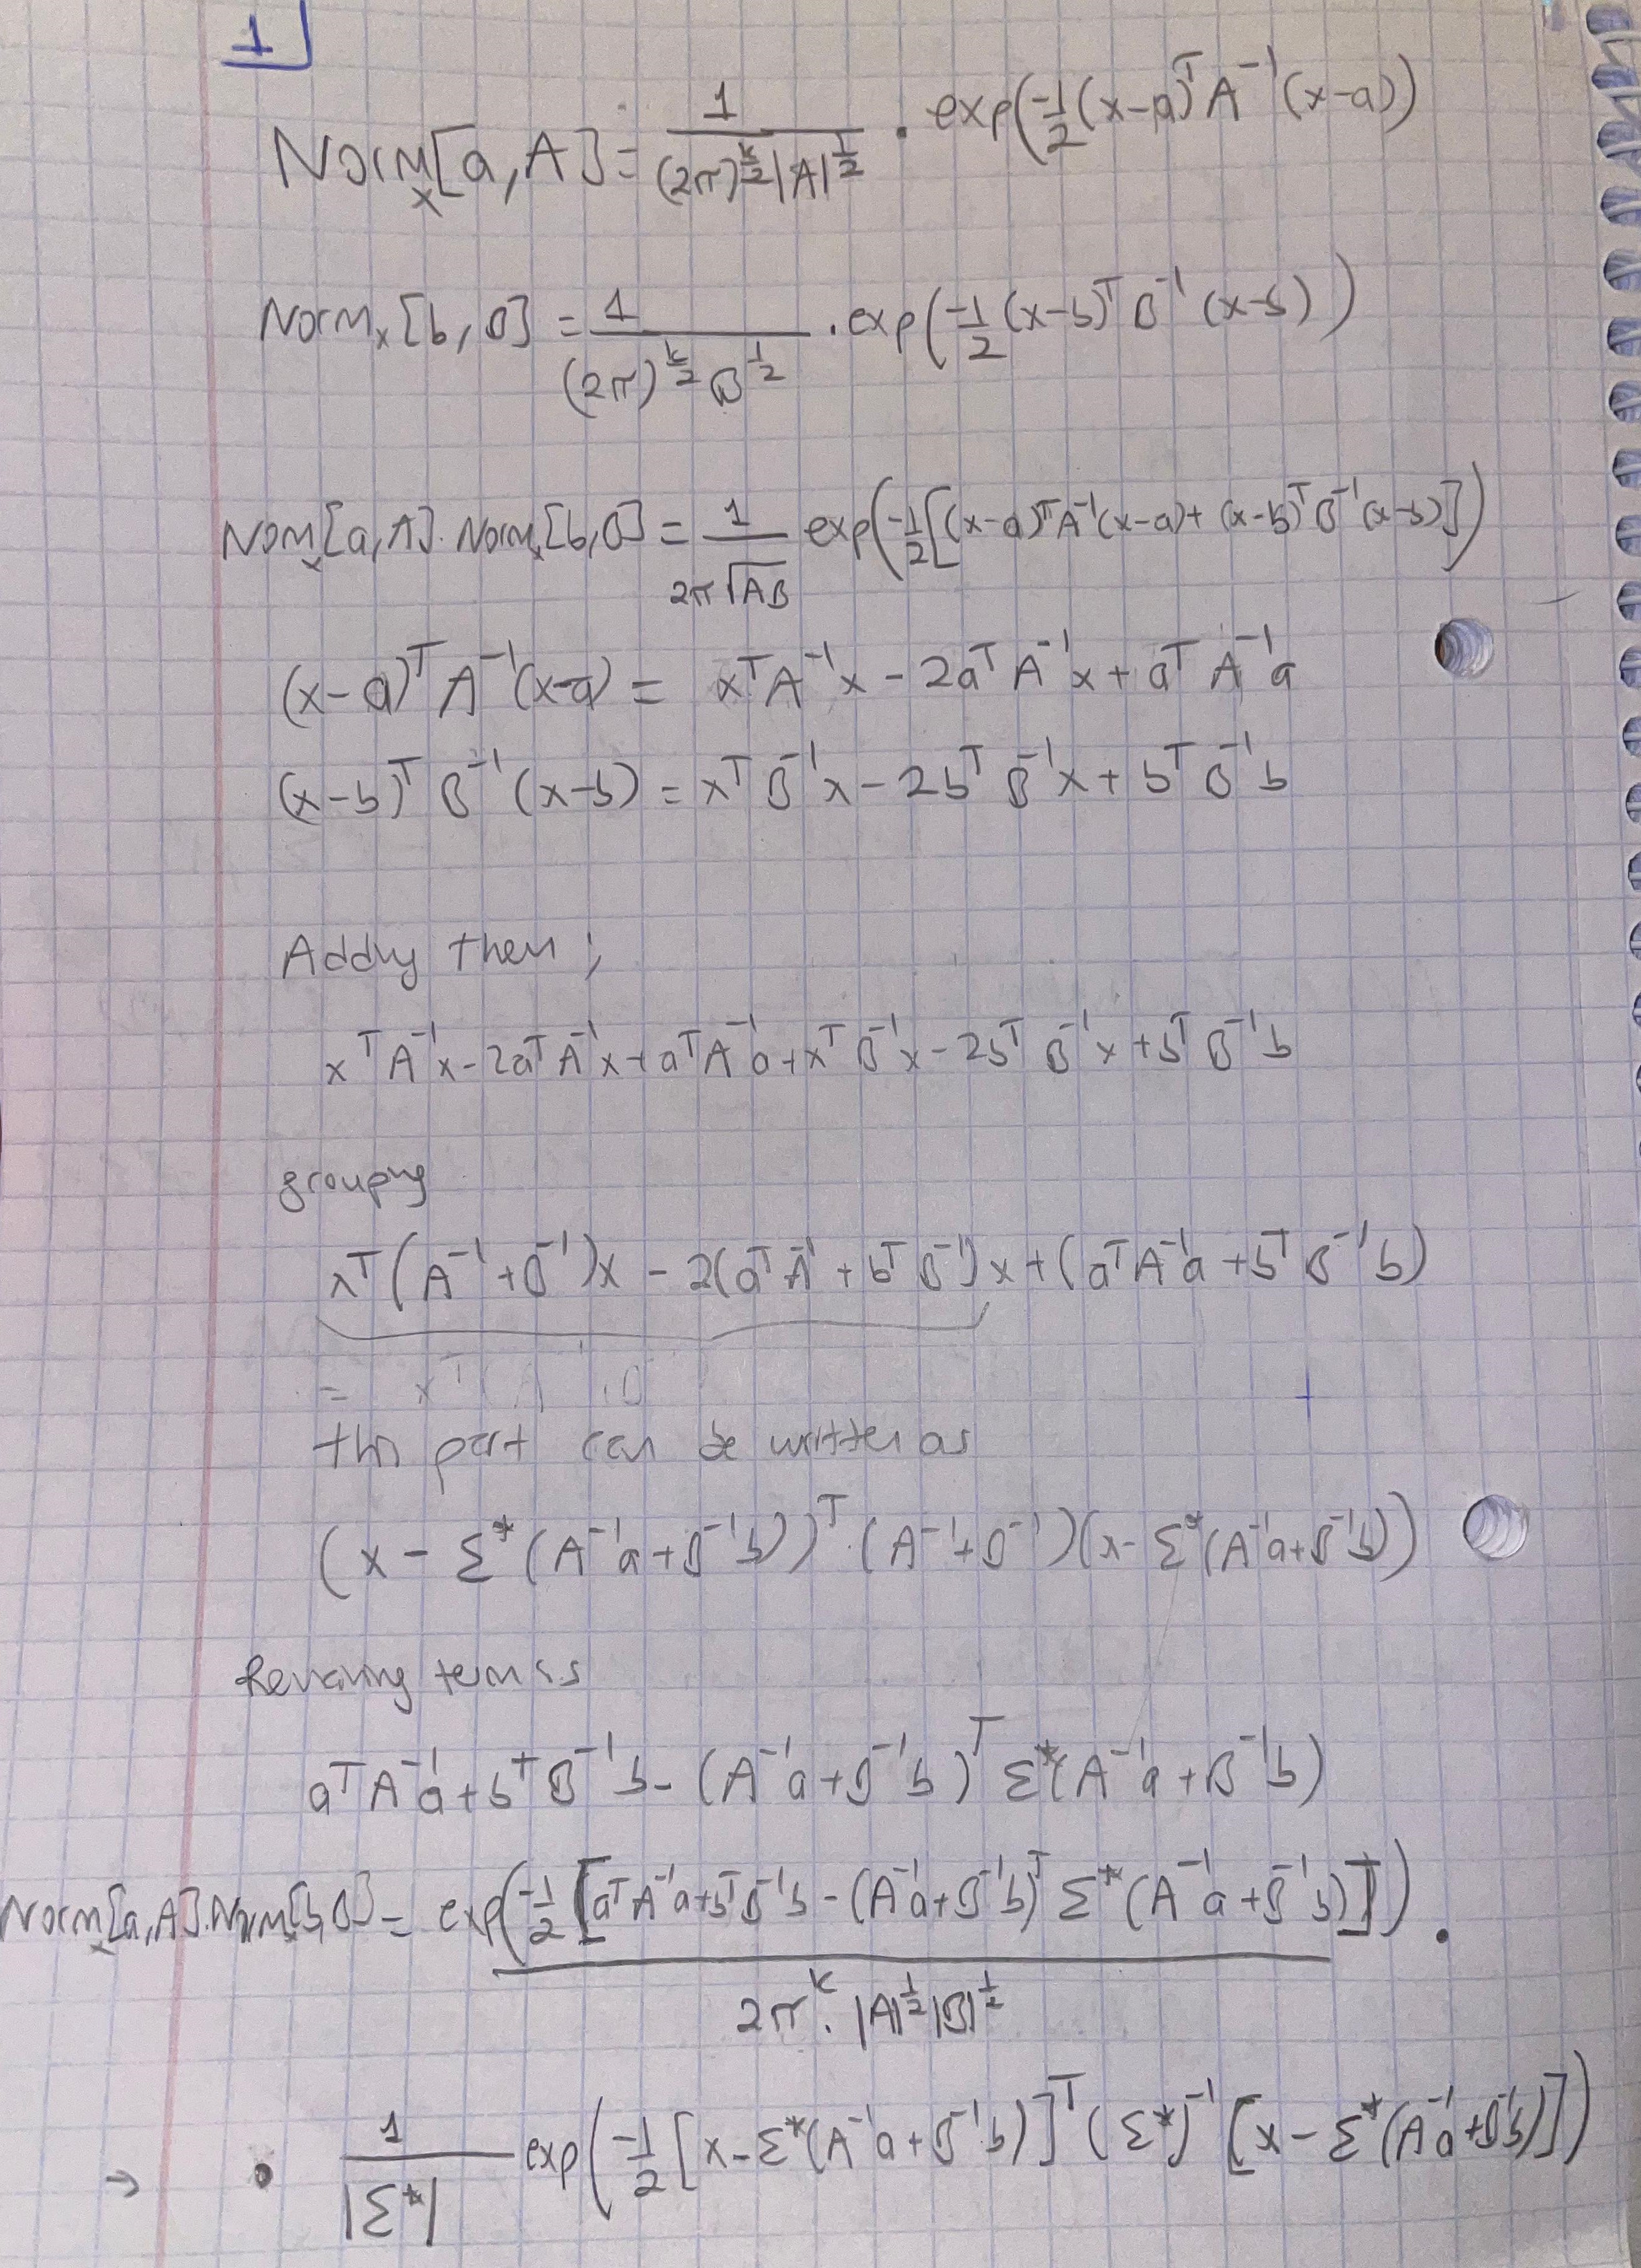 1
Norm_x[a,A] = 1/((2π)^(k/2) |A|^(1/2)) · exp(-1/2 (x-a)^T A^-1 (x-a))
Norm_x[b,B] = 1/((2π)^(k/2) B^(1/2)) · exp(-1/2 (x-b)^T B^-1 (x-b))
Nom_x[a,A]. Norm_x[b,B] = 1/(2π√AB) exp(-1/2 [(x-a)^T A^-1 (x-a) + (x-b)^T B^-1 (x-b)])
(x-a)^T A^-1 (x-a) = x^T A^-1 x - 2a^T A^-1 x + a^T A^-1 a
(x-b)^T B^-1 (x-b) = x^T B^-1 x - 2b^T B^-1 x + b^T B^-1 b
Adding them ;
x^T A^-1 x - 2a^T A^-1 x + a^T A^-1 a + x^T B^-1 x - 2b^T B^-1 x + b^T B^-1 b
grouping
x^T (A^-1 + B^-1)x - 2(a^T A^-1 + b^T B^-1)x + (a^T A^-1 a + b^T B^-1 b)
this part can be written as
(x - Σ*(A^-1 a + B^-1 b))^T · (A^-1 + B^-1)(x - Σ*(A^-1 a + B^-1 b))
Remaining term is
a^T A^-1 a + b^T B^-1 b - (A^-1 a + B^-1 b)^T Σ*(A^-1 a + B^-1 b)
Norm_x[a,A].Norm_x[b,B] = exp(-1/2 [a^T A^-1 a + b^T B^-1 b - (A^-1 a + B^-1 b)^T Σ*(A^-1 a + B^-1 b)]) / (2π^k . |A|^(1/2) |B|^(1/2)) ·
→ · 1/|Σ*| exp(-1/2 [x - Σ*(A^-1 a + B^-1 b)]^T (Σ*)^-1 [x - Σ*(A^-1 a + B^-1 b)])